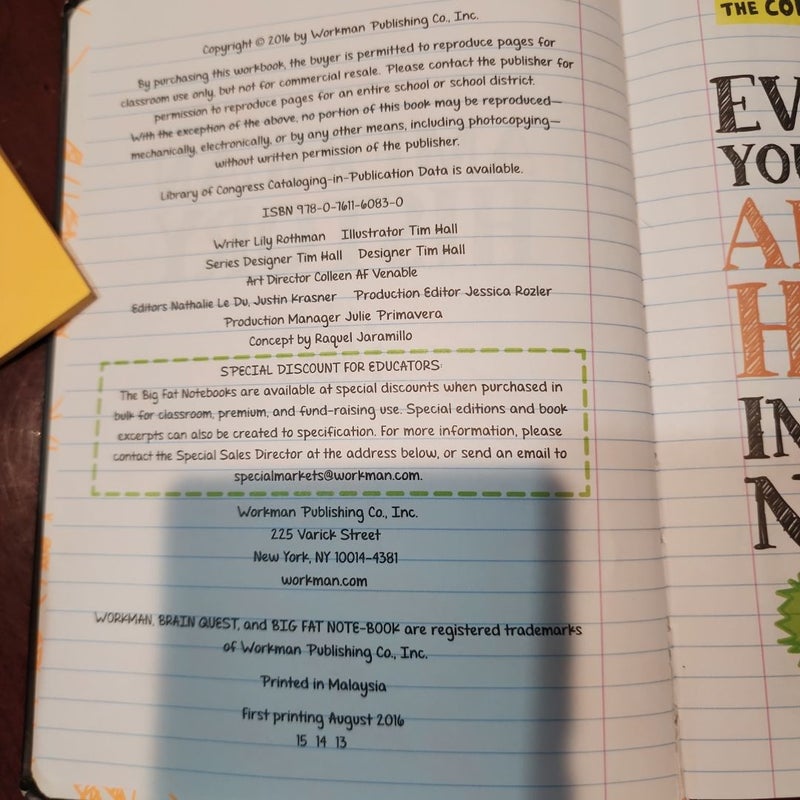 Copyright © 2016 by Workman Publishing Co., Inc.
By purchasing this workbook, the buyer is permitted to reproduce pages for
classroom use only, but not for commercial resale. Please contact the publisher for
permission to reproduce pages for an entire school or school district.
With the exception of the above, no portion of this book may be reproduced—
mechanically, electronically, or by any other means, including photocopying—
without written permission of the publisher.
Library of Congress Cataloging-in-Publication Data is available.
ISBN 978-0-7611-6083-0
Writer Lily Rothman Illustrator Tim Hall
Series Designer Tim Hall Designer Tim Hall
Art Director Colleen AF Venable
Editors Nathalie Le Du, Justin Krasner Production Editor Jessica Rozler
Production Manager Julie Primavera
Concept by Raquel Jaramillo
SPECIAL DISCOUNT FOR EDUCATORS:
The Big Fat Notebooks are available at special discounts when purchased in
bulk for classroom, premium, and fund-raising use. Special editions and book
excerpts can also be created to specification. For more information, please
contact the Special Sales Director at the address below, or send an email to
specialmarkets@workman.com.
Workman Publishing Co., Inc.
225 Varick Street
New York, NY 10014-4381
workman.com
WORKMAN, BRAIN QUEST, and BIG FAT NOTE-BOOK are registered trademarks
of Workman Publishing Co., Inc.
Printed in Malaysia
First printing August 2016
15 14 13
THE CO
EV
YOU
A
H
IN
N